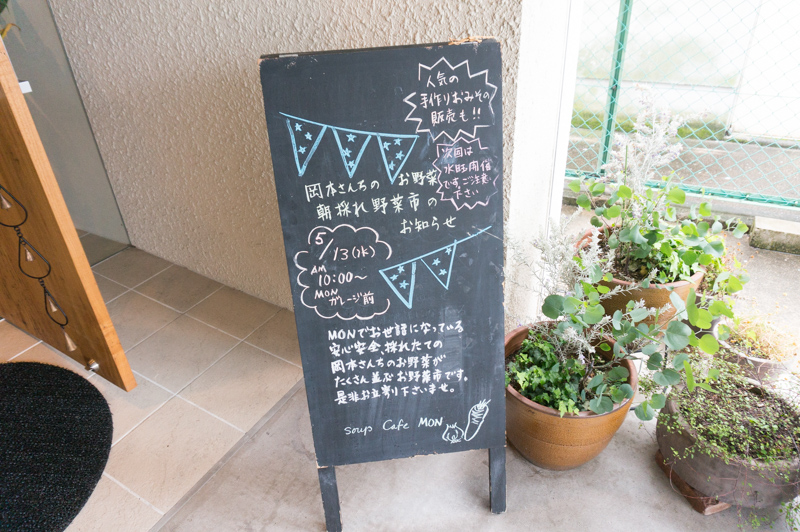 人気の
手作りおみその
販売も!!
次回は
水曜開催
ですご注意
下さい
岡本さんちの お野菜
朝採れ野菜市の
お知らせ
5/13(水)
AM
10:00〜
MON
ガレージ前
MONでお世話になっている
安心安全、採れたての
岡本さんちのお野菜が
たくさん並ぶお野菜市です。
是非お立寄り下さいませ。
soup Cafe MON